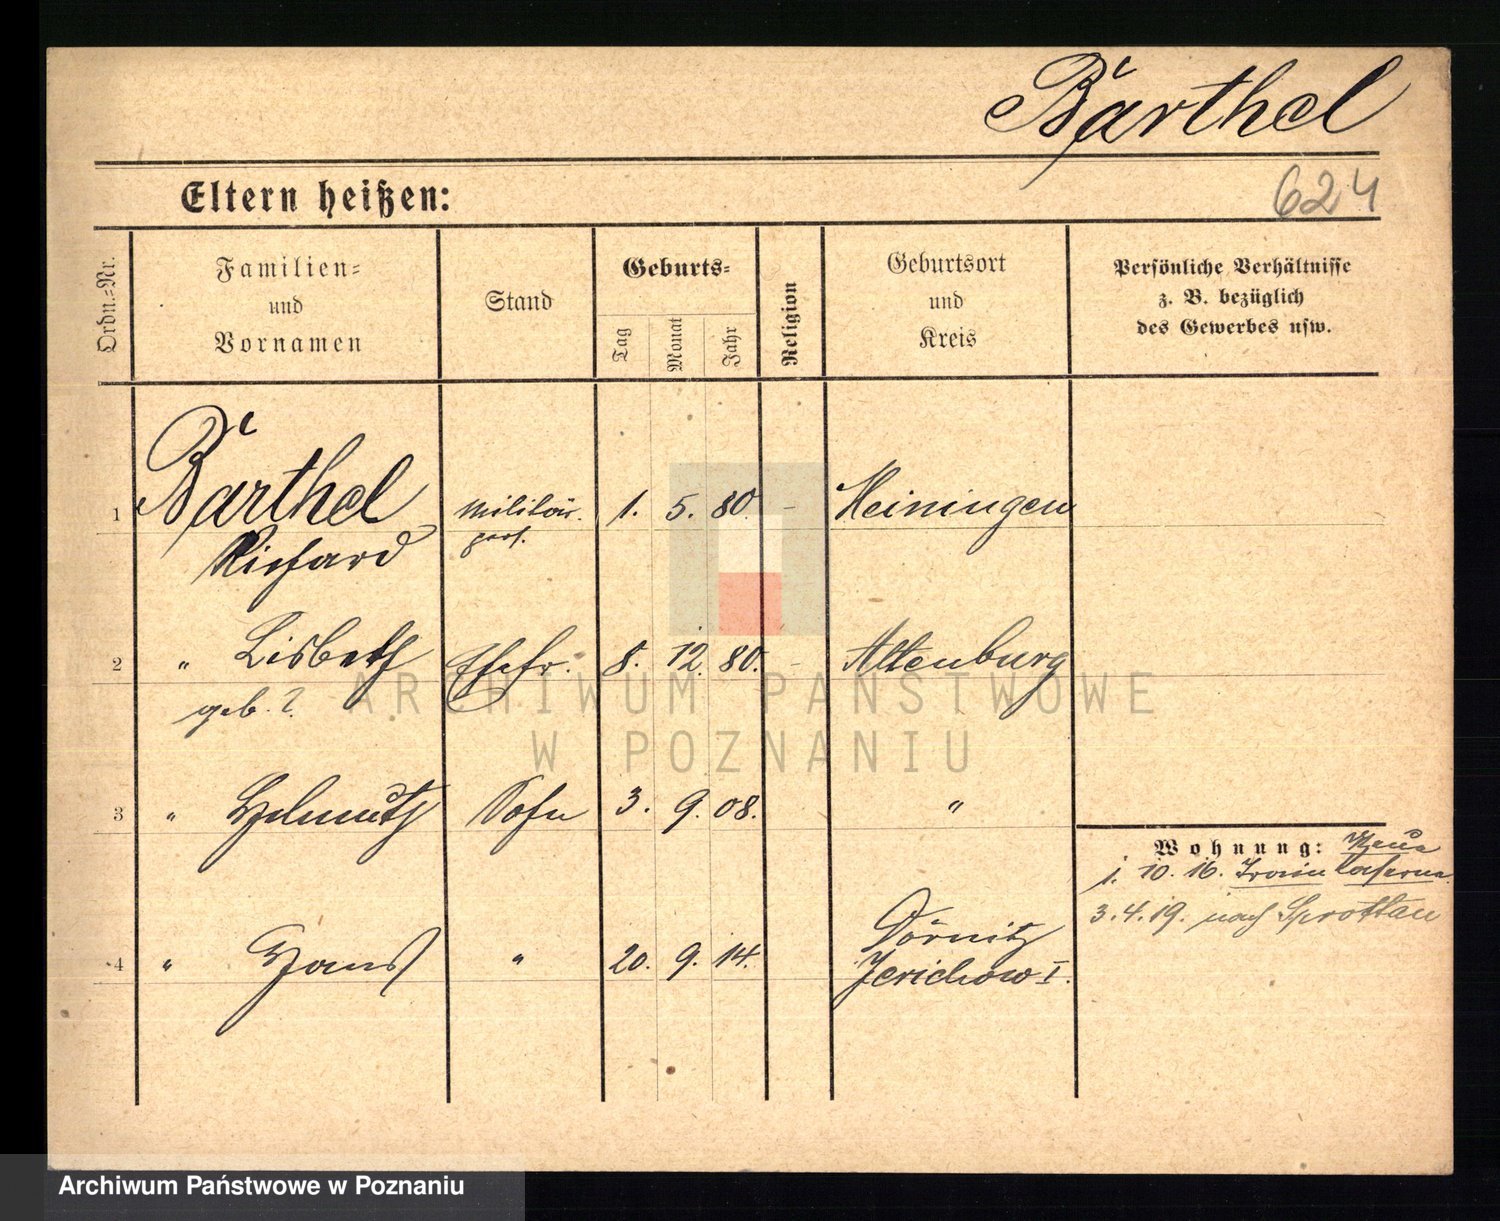 Bärthel
624
Eltern heißen:
Ordn.=Nr.
Familien=
und
Vornamen
Stand
Geburts=
Tag
Monat
Jahr
Religion
Geburtsort
und
Kreis
Persönliche Verhältnisse
z. B. bezüglich
des Gewerbes usw.
1 Bärthel Militär. 1. 5. 80. - Meiningen
Richard
2 " Lisbeth Ehefr. 8. 12. 80. - Altenburg
geb. ?
3 " Helmuth Sohn 3. 9. 08. "
Wohnung: Neue
1. 10. 16. Train Caserne
3. 4. 19. nach Sprottau
4 " Hans " 20. 9. 14. Dörnitz
Jerichow I.
ARCHIWUM PAŃSTWOWE
W POZNANIU
Archiwum Państwowe w Poznaniu